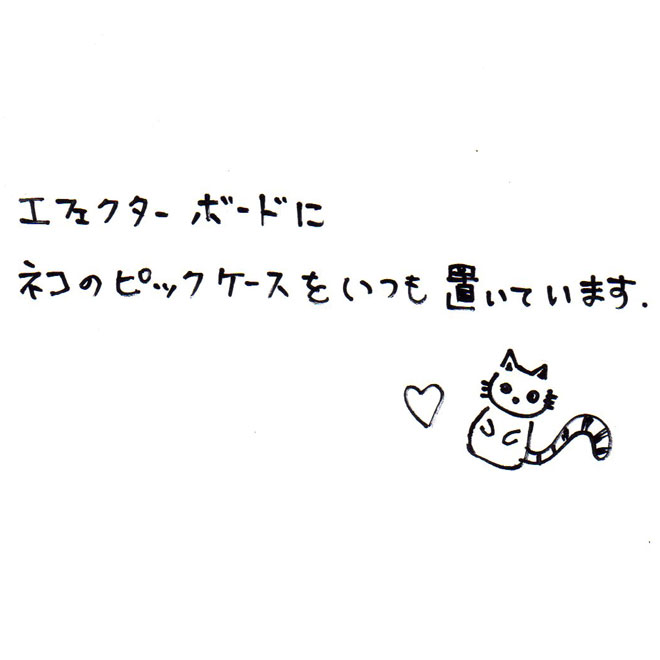 エフェクターボードに
ネコのピックケースをいつも置いています.